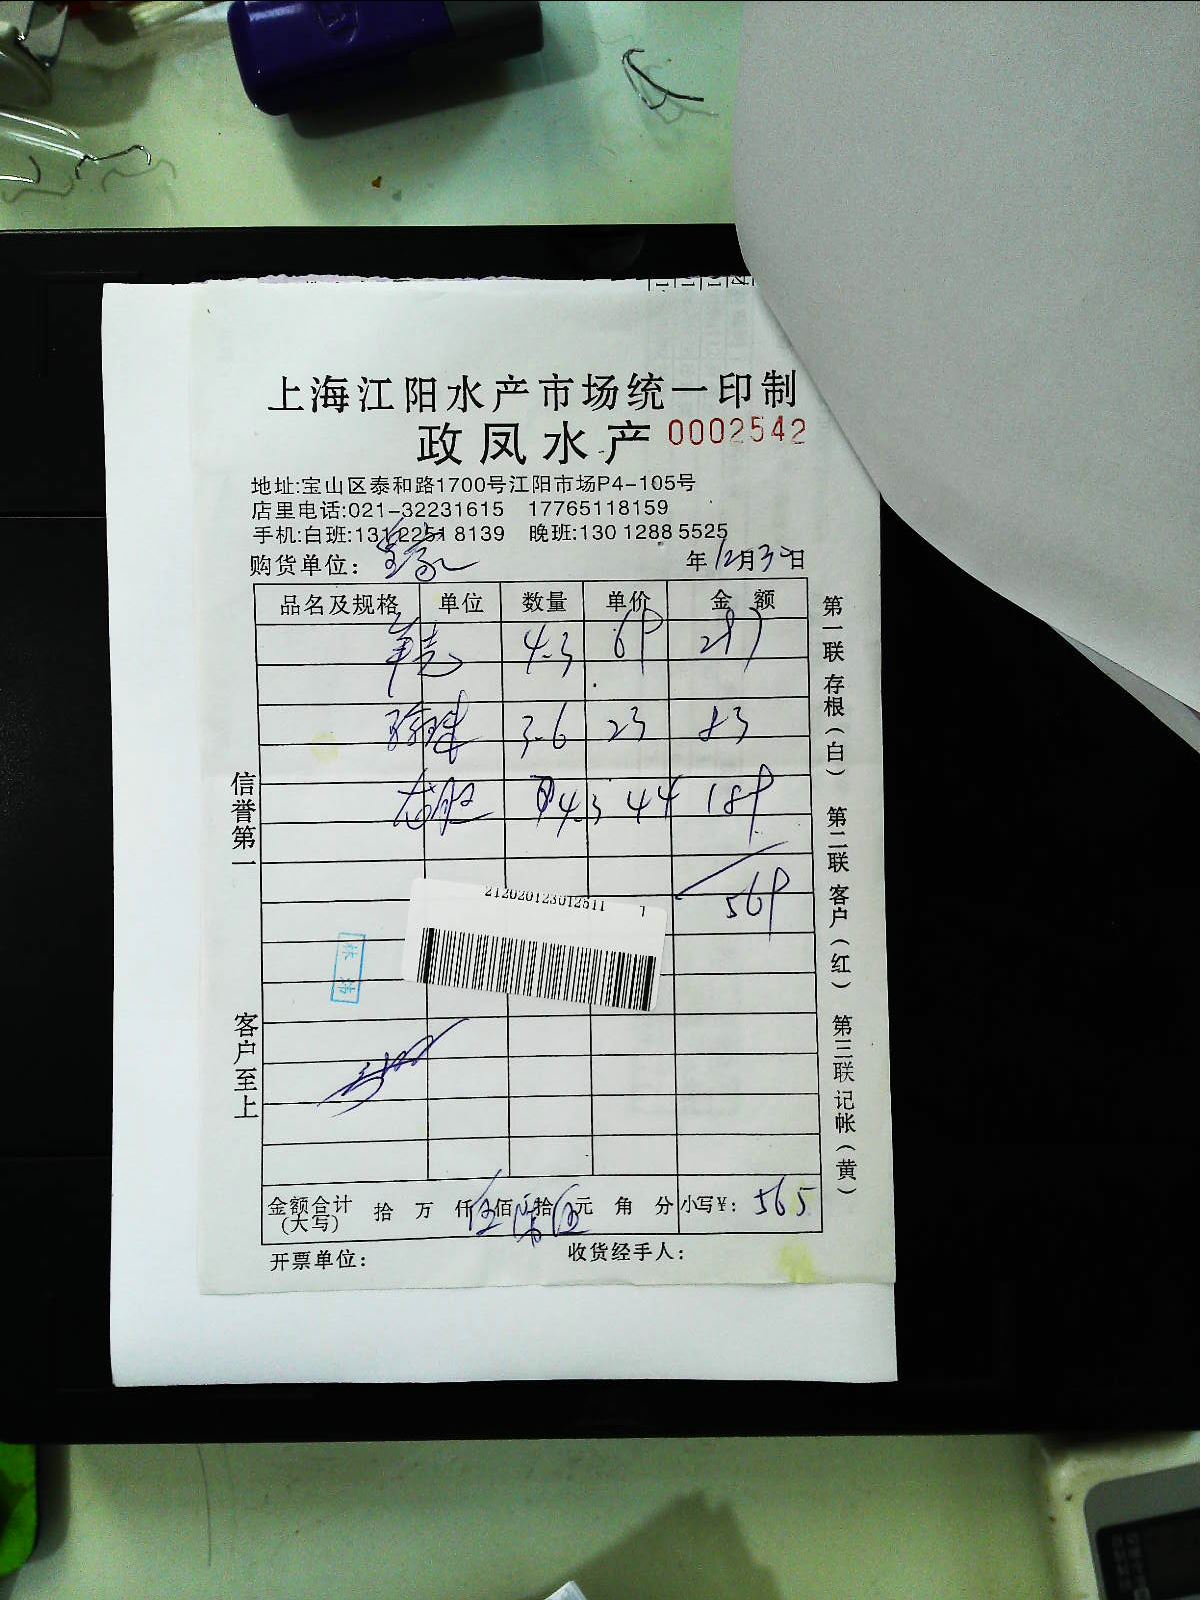 上海江阳水产市场统一印制
政凤水产 0002542
地址:宝山区泰和路1700号江阳市场P4-105号
店里电话:021-32231615 17765118159
手机:白班:131 2251 8139 晚班:130 1288 5525
购货单位: 年12月30日
品名及规格 单位 数量 单价 金额
4.3 69 297
3.6 23 83
4.3 44 189
569
212020123012511 7
金额合计(大写) 拾 万 仟伍佰陆拾伍元 角 分 小写¥: 565
开票单位: 收货经手人:
信誉第一 客户至上
第一联存根(白) 第二联客户(红) 第三联记帐(黄)